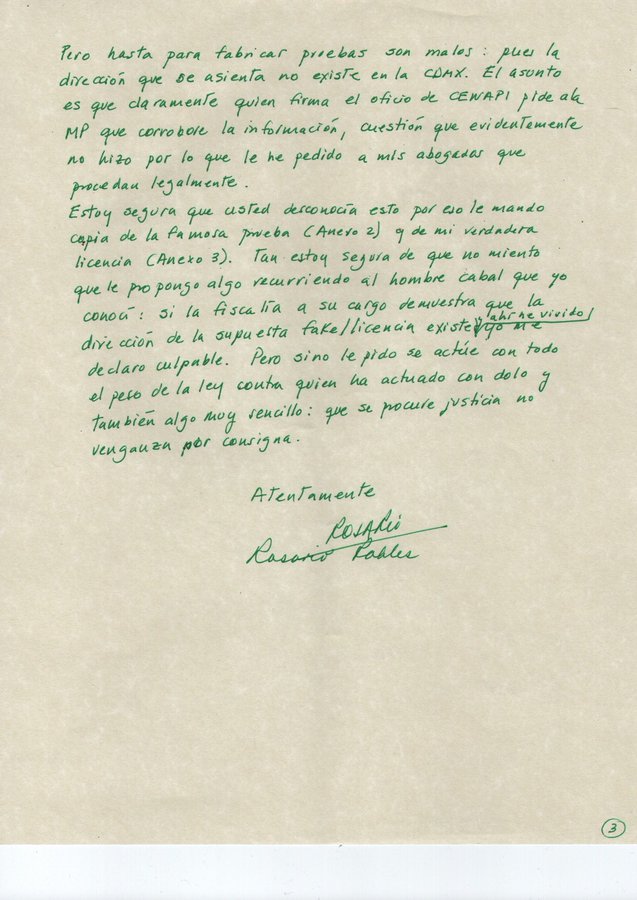 Pero hasta para fabricar pruebas son malos: pues la
dirección que se asienta no existe en la CDMX. El asunto
es que claramente quien firma el oficio de CENAPI pide a la
MP que corrobore la información, cuestión que evidentemente
no hizo por lo que le he pedido a mis abogados que
procedan legalmente.
Estoy segura que usted desconocía esto por eso le mando
copia de la famosa prueba (Anexo 2) y de mi verdadera
licencia (Anexo 3). Tan estoy segura de que no miento
que le propongo algo recurriendo al hombre cabal que yo
conocí: si la fiscalía a su cargo demuestra que la
dirección de la supuesta fake/licencia existe y ahí he vivido/ yo me
declaro culpable. Pero sino le pido se actúe con todo
el peso de la ley contra quien ha actuado con dolo y
también algo muy sencillo: que se procure justicia no
venganza por consigna.
Atentamente
ROSARIO
Rosario Robles
3